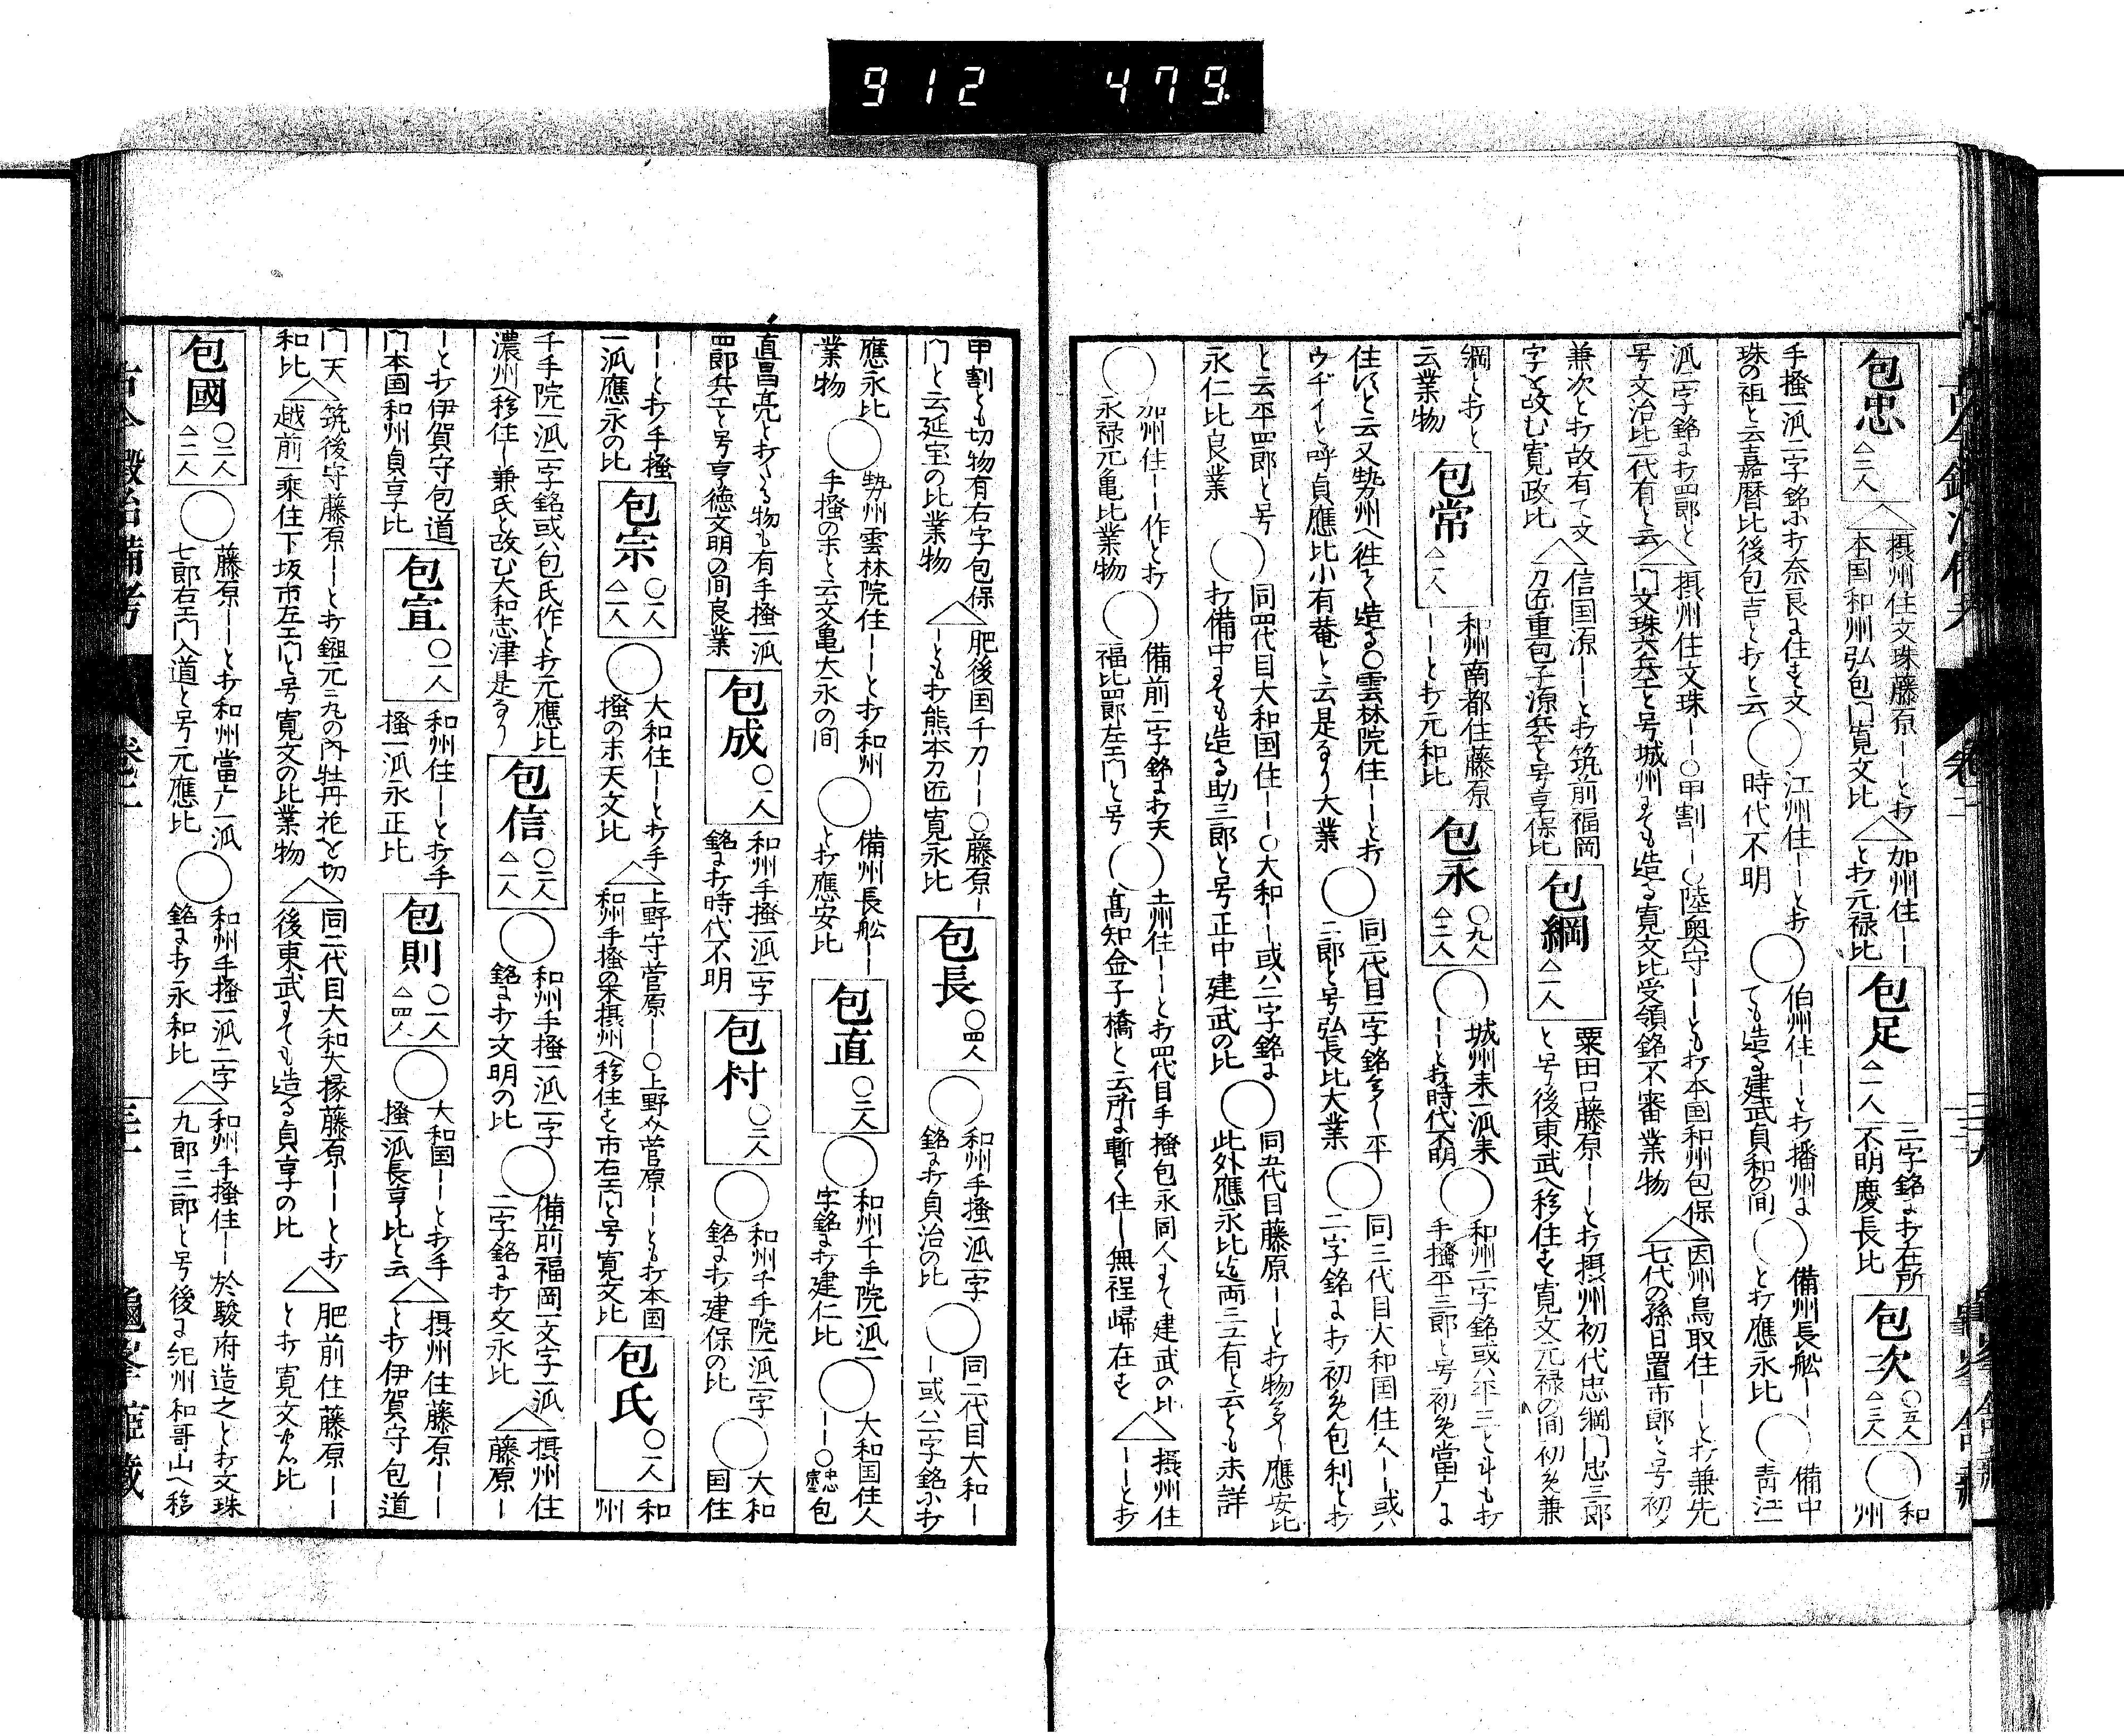 912 479
包忠
△二人
△摂州住文珠藤原ーーと打
本国和州弘包門寛文比
△加州住ーー
と打元禄比
包足
△一人
二字銘に打在所
不明慶長比
包次
〇五人
△三人
〇和
州
手掻一派二字銘に打奈良に住す文
珠の祖と云嘉暦比後包吉と打と云
〇江州住ーーと打
時代不明
〇伯州住ーーと打播州に
ても造る建武貞和の間
〇備州長舩ーー
と打應永比
〇備中
青江
派二字銘に打四郎と
号文治比二代有と云
△摂州住文珠ーー〇甲割ーー〇陸奥守ーーとも打本国和州包保
門文珠六兵エと号城州にても造る寛文比受領銘不審業物
△因州鳥取住ーーと打兼先
七代の孫日置市郎と号初メ
兼次と打故有て文
字を改む寛政比
△信国源ーーと打筑前福岡
刀匠重包子源兵エと号享保比
包綱
△一人
粟田口藤原ーーと打摂州初代忠綱門忠三郎
と号後東武へ移住す寛文元禄の間初メ兼
綱と打と
云業物
包常
△一人
和州南都住藤原
ーーと打元和比
包永
〇九人
△三人
〇城州来一派来
ーーと打時代不明
〇和州二字銘或ハ平三と斗も打
手掻平三郎と号初メ當广に
住スと云又勢州へ徃て造る〇雲林院住ーーと打
ウヂイと呼貞應比小有菴と云是なり大業
〇同二代目二字銘多し平
三郎と号弘長比大業
〇同三代目大和国住人ーー或ハ
二字銘に打初メ包利と打
と云平四郎と号
永仁比良業
〇同四代目大和国住ーー〇大和ーー或ハ二字銘に
打備中にても造る助三郎と号正中建武の比
〇同五代目藤原ーーと打物多し應安比
此外應永比迄両三工有と云とも未詳
〇加州住ーー作と打
永禄元亀比業物
〇備前二字銘に打天
福比四郎左エ門と号
〇土州住ーーと打四代目手掻包永同人にて建武の比
髙知金子橋と云所に暫く住し無程帰在す
△摂州住
ーーと打
甲割とも切物有右字包保
門と云延宝の比業物
△肥後国千刀ーー〇藤原ー
ーとも打熊本刀匠寛永比
包長
〇四人
〇和州手掻一派二字
銘に打貞治の比
〇同二代目大和ー
ー或ハ二字銘に打
應永比
業物
〇勢州雲林院住ーーと打和州
手掻の末と云文亀大永の間
〇備州長舩ーー
と打應安比
包直
〇三人
〇和州千手院一派二
字銘に打建仁比
〇大和国住人
ーー〇包
直昌亮と打たる物も有手掻一派
四郎兵エと号亨徳文明の間良業
包成
〇一人
和州手掻一派二字
銘に打時代不明
包村
〇二人
〇和州千手院一派二字
銘に打建保の比
〇大和
国住
ーーと打手掻
一派應永の比
包宗
〇一人
△一人
〇大和住ーーと打手
掻の末天文比
△上野守菅原ーー〇上野介菅原ーーとも打本国
和州手掻の末摂州へ移住す市右エ門と号寛文比
包氏
〇一人
和
州
千手院一派二字銘或ハ包氏作と打元應比
濃州へ移住し兼氏と改む大和志津是なり
包信
〇二人
△一人
〇和州手掻一派二字
銘に打文明の比
〇備前福岡一文字一派
二字銘に打文永比
△摂州住
藤原ー
ーと打伊賀守包道
門本国和州貞享比
包宣
〇一人
和州住ーーと打手
掻一派永正比
包則
〇一人
△四人
〇大和国ーーと打手
掻一派長亨比と云
△摂州住藤原ーー
と打伊賀守包道
門天
和比
△筑後守藤原ーーと打鎺元二丸の内牡丹花を切
越前一乗住下坂市左エ門と号寛文の比業物
△同二代目大和大掾藤原ーーと打
後東武にても造る貞享の比
△肥前住藤原ーー
と打寛文比
包國
〇三人
△二人
〇藤原ーーと打和州當广一派
七郎右エ門入道と号元應比
〇和州手掻一派二字
銘に打永和比
△和州手掻住ーー於駿府造之と打文珠
九郎三郎と号後に紀州和哥山へ移
古今鍛冶備考